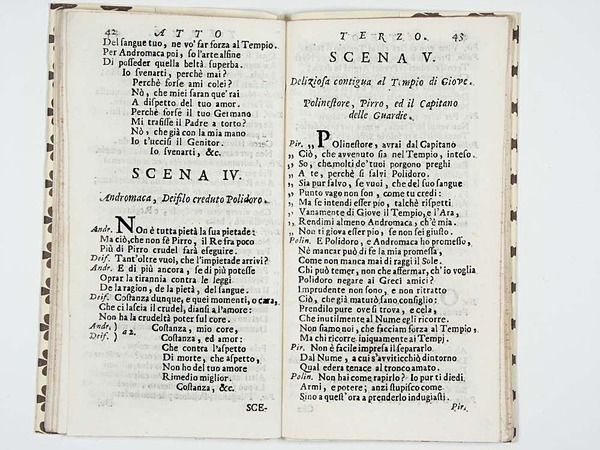 42 ATTO
Del sangue tuo, ne vo' far forza al Tempio.
Per Andromaca poi, so l'arte alfine
Di posseder quella beltà superba.
Io svenarti, perchè mai?
Perchè forse ami colei?
Nò, che miei saran que' rai
A dispetto del tuo amor.
Perchè forse il tuo Germano
Mi trafisse il Padre a torto?
Nò, che già con la mia mano
Io t'uccisi il Genitor.
Io svenarti, &c.
SCENA IV.
Andromaca, Deifilo creduto Polidoro.
Andr. NOn è tutta pietà la sua pietade:
Ma ciò, che non fè Pirro, il Re fra poco
Più di Pirro crudel sarà eseguire.
Deif. Tant'oltre vuoi, che l'impietade arrivi?
Andr. E di più ancora, se di più potesse
Oprar la tirannia contro le leggi
De la ragion, de la pietà, del sangue.
Deif. Costanza dunque, e quei momenti, o cara,
Che ci lascia il crudel, diansi a l'amore:
Non ha la crudeltà poter sul core.
Andr. ) a 2. Costanza, mio core,
Deif. ) Costanza, ed amor:
Che contra l'aspetto
Di morte, che aspetto,
Non ho del tuo amore
Rimedio miglior.
Costanza, &c.
SCE-
TERZO. 43
SCENA V.
Deliziosa contigua al Tempio di Giove.
Polinestore, Pirro, ed il Capitano
delle Guardie.
Pir. „ POlinestore, avrai dal Capitano
„ Ciò, che avvenuto sia nel Tempio, inteso.
„ So, che molti de' tuoi porgono preghi
„ A te, perchè si salvi Polidoro.
„ Sia pur salvo, se vuoi, che del suo sangue
„ Punto vago non son, come tu credi:
„ Ma se intendi esser pio, talchè rispetti
„ Vanamente di Giove il Tempio, e l'Ara,
„ Rendimi almeno Andromaca, ch'è mia.
„ Non ti giova esser pio, se non sei giusto.
Polin. E Polidoro, e Andromaca ho promesso,
Nè mancar può di fe la mia promessa,
Come non manca mai di raggi il Sole.
Chi può temer, non che affermar, ch'io voglia
Polidoro negar ai Greci amici?
Imprudente non sono, e non ritratto
Ciò, che già maturò sano consiglio:
Prendilo pure ove si trova, e cela,
Che inutilmente al Nume egli ricorre.
Non siamo noi, che facciam forza al Tempio,
Ma chi ricorre iniquamente ai Tempj.
Pir. Non è facile impresa il separarlo
Dal Nume, a cui s'avviticchiò dintorno
Qual edera tenace al tronco amato.
Polin. Non hai come rapirlo? Io pur ti diedi
Armi, e potere; anzi stupisco come
Sino a quest'ora a prenderlo indugiasti.
Pir.